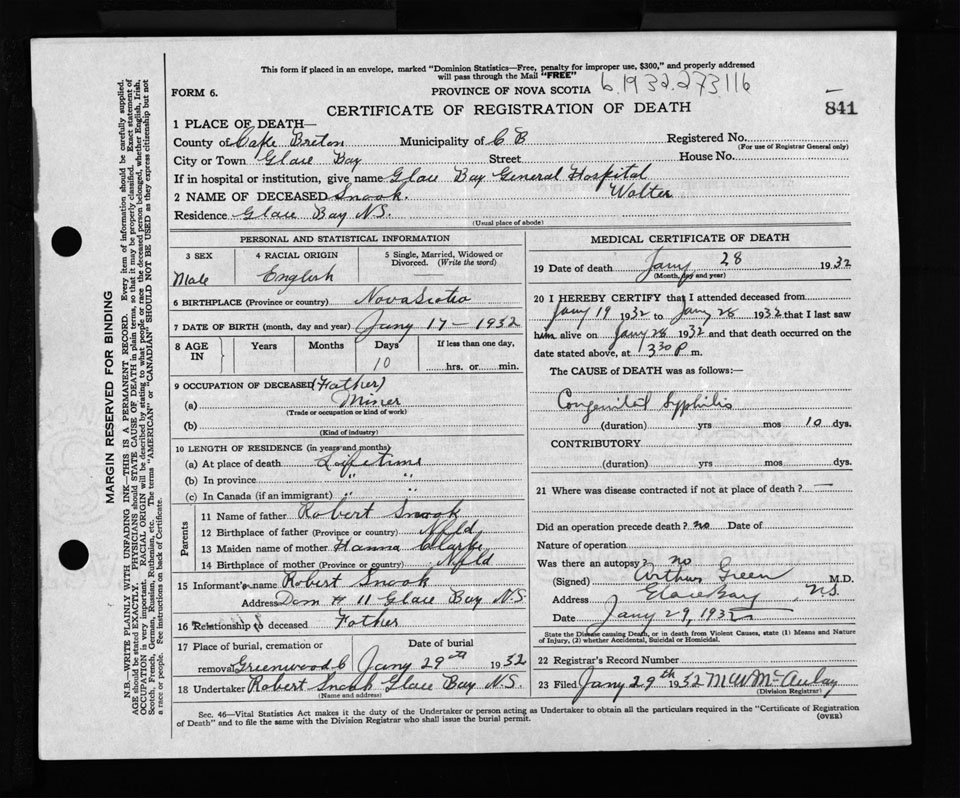 This form if placed in an envelope, marked "Dominion Statistics—Free, penalty for improper use, $300," and properly addressed
will pass through the Mail "FREE"
6.1932.273.116
FORM 6.
PROVINCE OF NOVA SCOTIA
CERTIFICATE OF REGISTRATION OF DEATH
841
1 PLACE OF DEATH—
County of Cape Breton Municipality of C B Registered No.
(For use of Registrar General only)
City or Town Glace Bay Street House No.
If in hospital or institution, give name Glace Bay General Hospital
2 NAME OF DECEASED Snook. Walter
Residence Glace Bay N.S.
(Usual place of abode)
PERSONAL AND STATISTICAL INFORMATION
3 SEX 4 RACIAL ORIGIN 5 Single, Married, Widowed or
Divorced. (Write the word)
Male English
6 BIRTHPLACE (Province or country) Nova Scotia
7 DATE OF BIRTH (month, day and year) Jany 17 - 1932
8 AGE IN Years Months Days If less than one day,
10 hrs. or min.
9 OCCUPATION OF DECEASED (Father)
(a) Miner
(Trade or occupation or kind of work)
(b)
(Kind of industry)
10 LENGTH OF RESIDENCE (in years and months)
(a) At place of death Life time
(b) In province " "
(c) In Canada (if an immigrant) " "
Parents
11 Name of father Robert Snook
12 Birthplace of father (Province or country) Nfld
13 Maiden name of mother Hanna Clarke
14 Birthplace of mother (Province or country) Nfld
15 Informant's name Robert Snook
Address Dom # 11 Glace Bay N.S.
16 Relationship to deceased Father
17 Place of burial, cremation or Date of burial
removal Greenwood C Jany 29th 1932
18 Undertaker Robert Snook Glace Bay N.S.
(Name and address)
MEDICAL CERTIFICATE OF DEATH
19 Date of death Jany 28 1932
(Month, day and year)
20 I HEREBY CERTIFY that I attended deceased from
Jany 19 1932 to Jany 28 1932 that I last saw
him alive on Jany 28 1932 and that death occurred on
date stated above, at 3 30 P m.
The CAUSE of DEATH was as follows:
Congenital Syphilis
(duration) yrs mos 10 dys.
CONTRIBUTORY
(duration) yrs mos dys.
21 Where was disease contracted if not at place of death? —
Did an operation precede death? no Date of
Nature of operation
Was there an autopsy? no
(Signed) Arthur Green M.D.
Address Glace Bay N.S.
Date Jany 29, 1932
State the Disease causing Death, or in death from Violent Causes, state (1) Means and Nature
of Injury, (2) whether Accidental, Suicidal or Homicidal.
22 Registrar's Record Number
23 Filed Jany 29th 1932 M W McAulay
(Division Registrar)
Sec. 46—Vital Statistics Act makes it the duty of the Undertaker or person acting as Undertaker to obtain all the particulars required in the "Certificate of Registration
of Death" and to file the same with the Division Registrar who shall issue the burial permit.
(OVER)
MARGIN RESERVED FOR BINDING
N.B.—WRITE PLAINLY WITH UNFADING INK—THIS IS A PERMANENT RECORD. Every item of information should be carefully supplied.
AGE should be stated EXACTLY. PHYSICIANS should STATE CAUSE OF DEATH in plain terms, so that it may be properly classified. Exact statement of
OCCUPATION is very important. RACIAL ORIGIN will be described by stating to what people or race the deceased person belonged, whether English, Irish,
Scotch, French, German, Russian, Ruthenian, etc. The terms "AMERICAN" or "CANADIAN" SHOULD NOT BE USED as they express citizenship but not
a race or people. See instructions on back of Certificate.